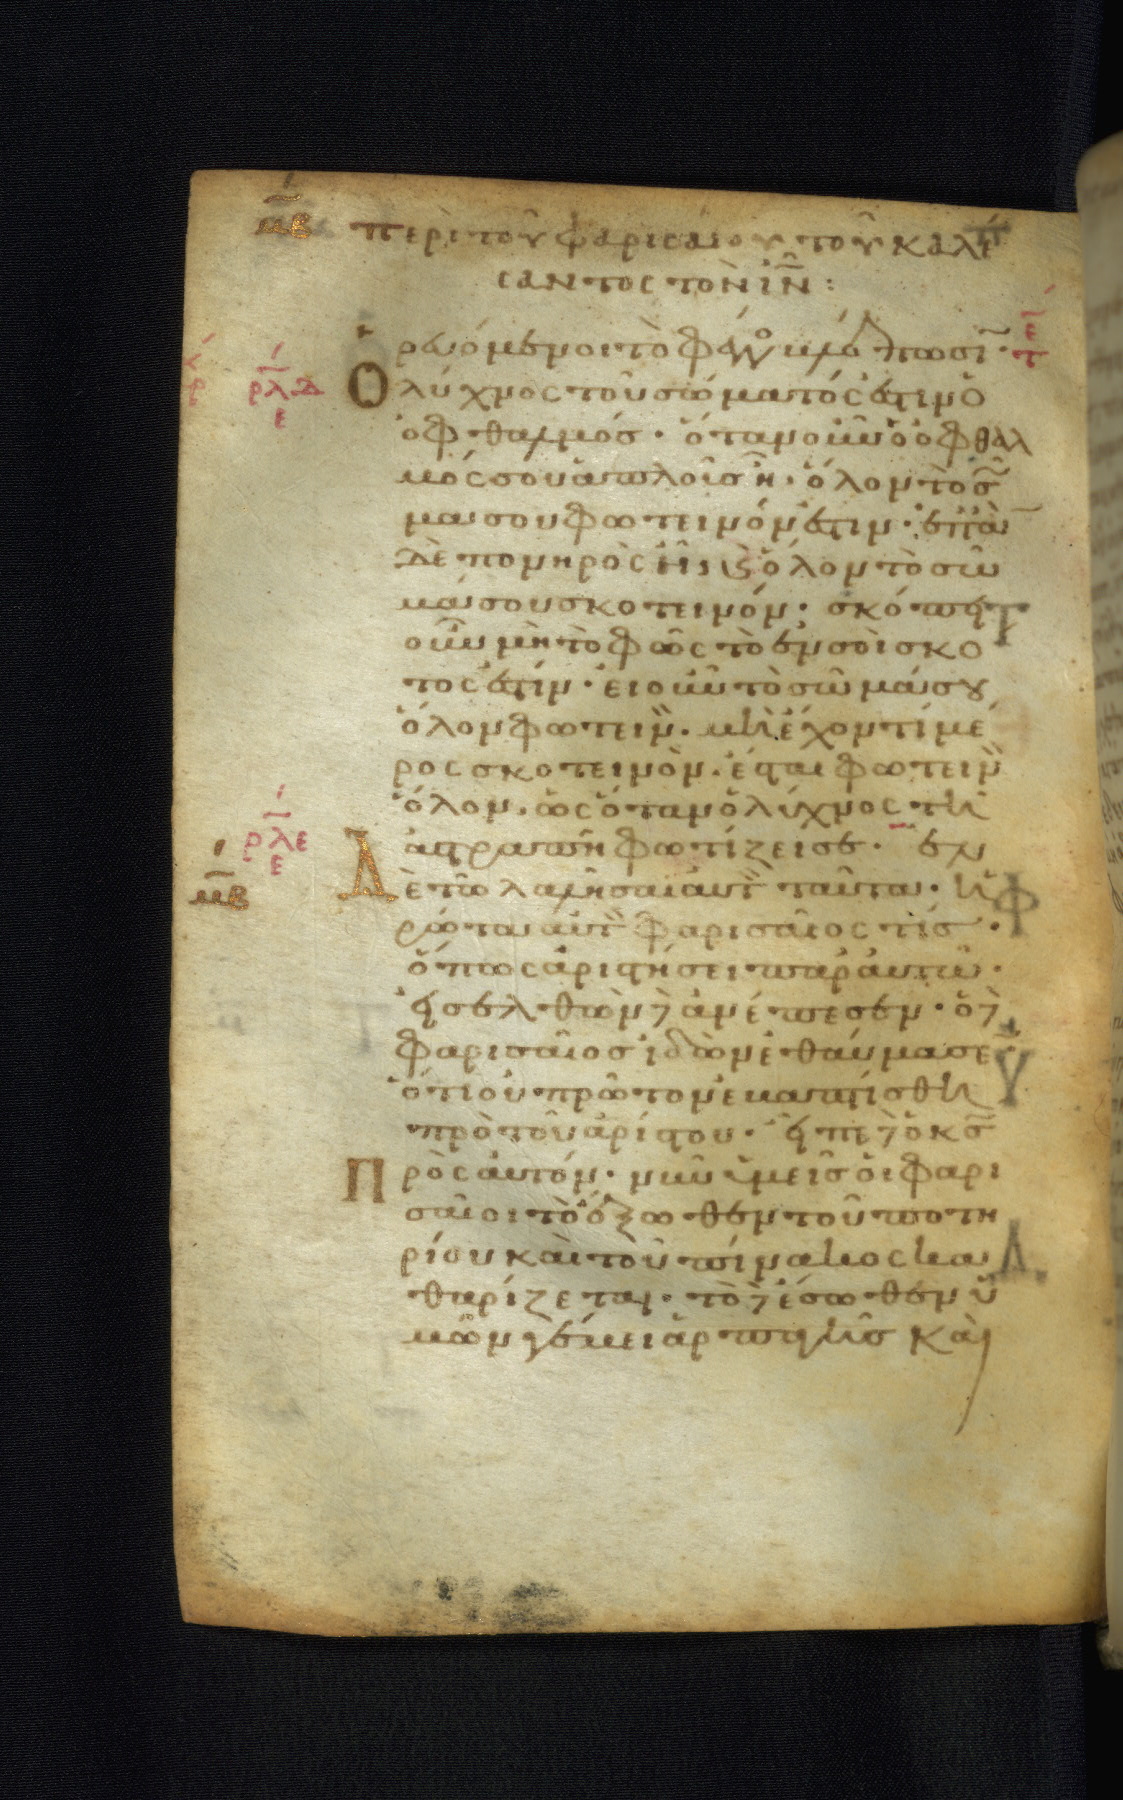 μβ περὶ τοῦ φαρισαίου τοῦ καλέ
σαντος τὸν ἰν̅:
ρευόμενοι τὸ φέγγος βλέπωσι̅·
Ο λύχνος τοῦ σώματός ἐστιν ὁ
ὀφθαλμός· ὅταν οὖν ὁ ὀφθαλ
μός σου ἁπλοῦς ῆ· ὅλον τὸ σῶ
μα σου φωτεινόν ἐστιν· ἐπὰν
δὲ πονηρὸς ῆ, ϗ ὅλον τὸ σῶ
μά σου σκοτεινόν· σκόπει
οὖν μὴ τὸ φῶς τὸ ἐν σοὶ σκο
τος ἐστίν· εἰ οὖν τὸ σῶμά σου
ὅλον φωτεινὸν· μὴ ἔχον τί μέ
ρος σκοτεινὸν· ἔσται φωτεινὸν
ὅλον· ὡς ὅταν ὁ λύχνος τῆ
ρλε ε
ἀστραπῆ φωτίζει σε· ἐν
μβ Δ ὲ τῶ λαλῆσαι αὐτὸν ταῦτα· ἠ
ρώτα αὐτὸν φαρισαῖος τίς·
ὅπως ἀριστήσει παρ' αὐτῶ·
εἰσελθὼν δὲ ἀνέπεσεν· ὁ δὲ
φαρισαῖος ἰδὼν ἐθαύμασεν
ὅτι οὐ πρῶτον ἐβαπτίσθη
πρὸ τοῦ ἀρίστου· εἶπε δὲ ὁ κς̅
Π ρὸς αὐτόν· νῦν ὑμεῖς οἱ φαρι
σαῖοι τὸ ἔξωθεν τοῦ ποτη
ρίου καὶ τοῦ πίνακος κα
θαρίζεται· τὸ δὲ ἔσωθεν ὑ
μῶν γέμει ἁρπαγῆς καὶ